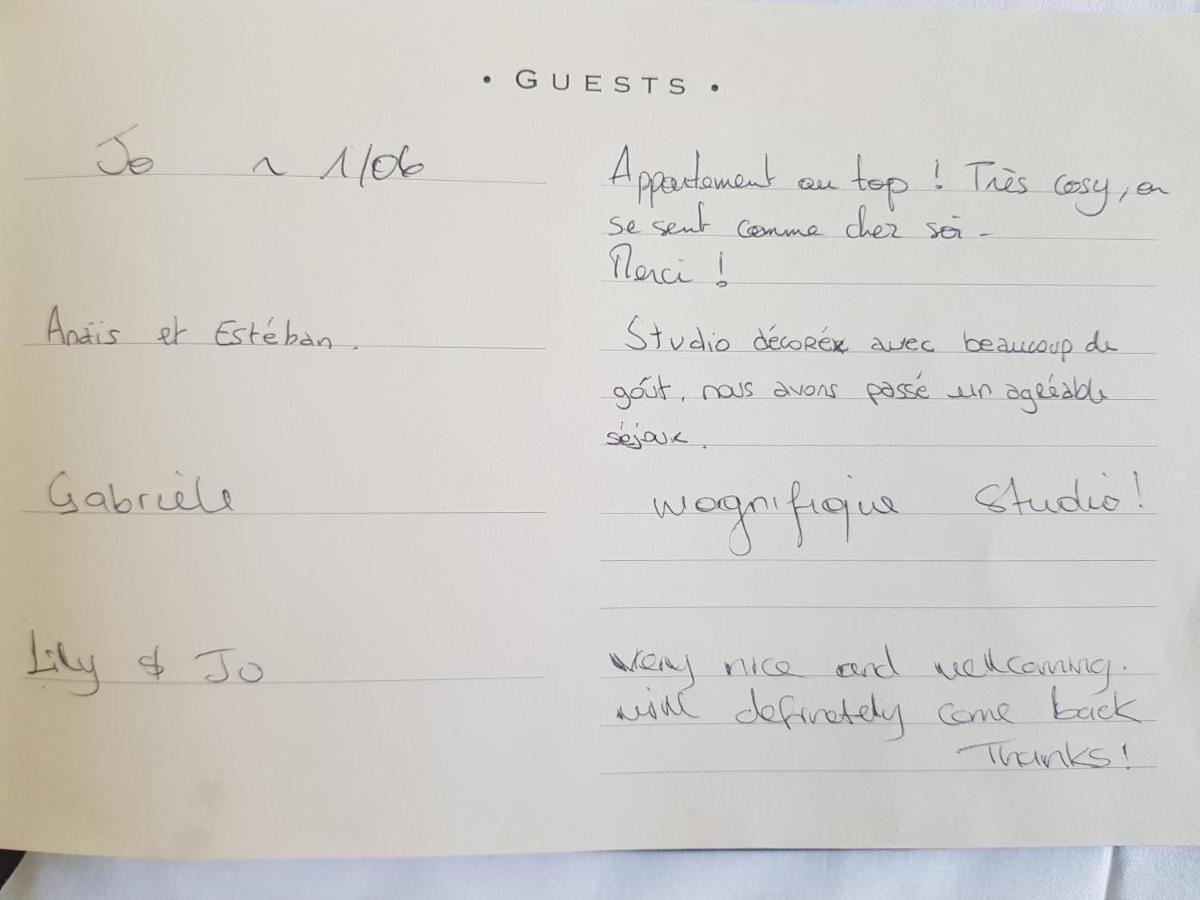 • GUESTS •
Jo ~ 1/06
Appartement au top ! Très cosy, on
se sent comme chez soi -
Merci !
Anaïs et Estéban.
Studio décoré avec beaucoup de
goût, nous avons passé un agréable
séjour.
Gabrièle
Magnifique Studio!
Lily & Jo
Very nice and wellcoming.
will definately come back
Thanks!